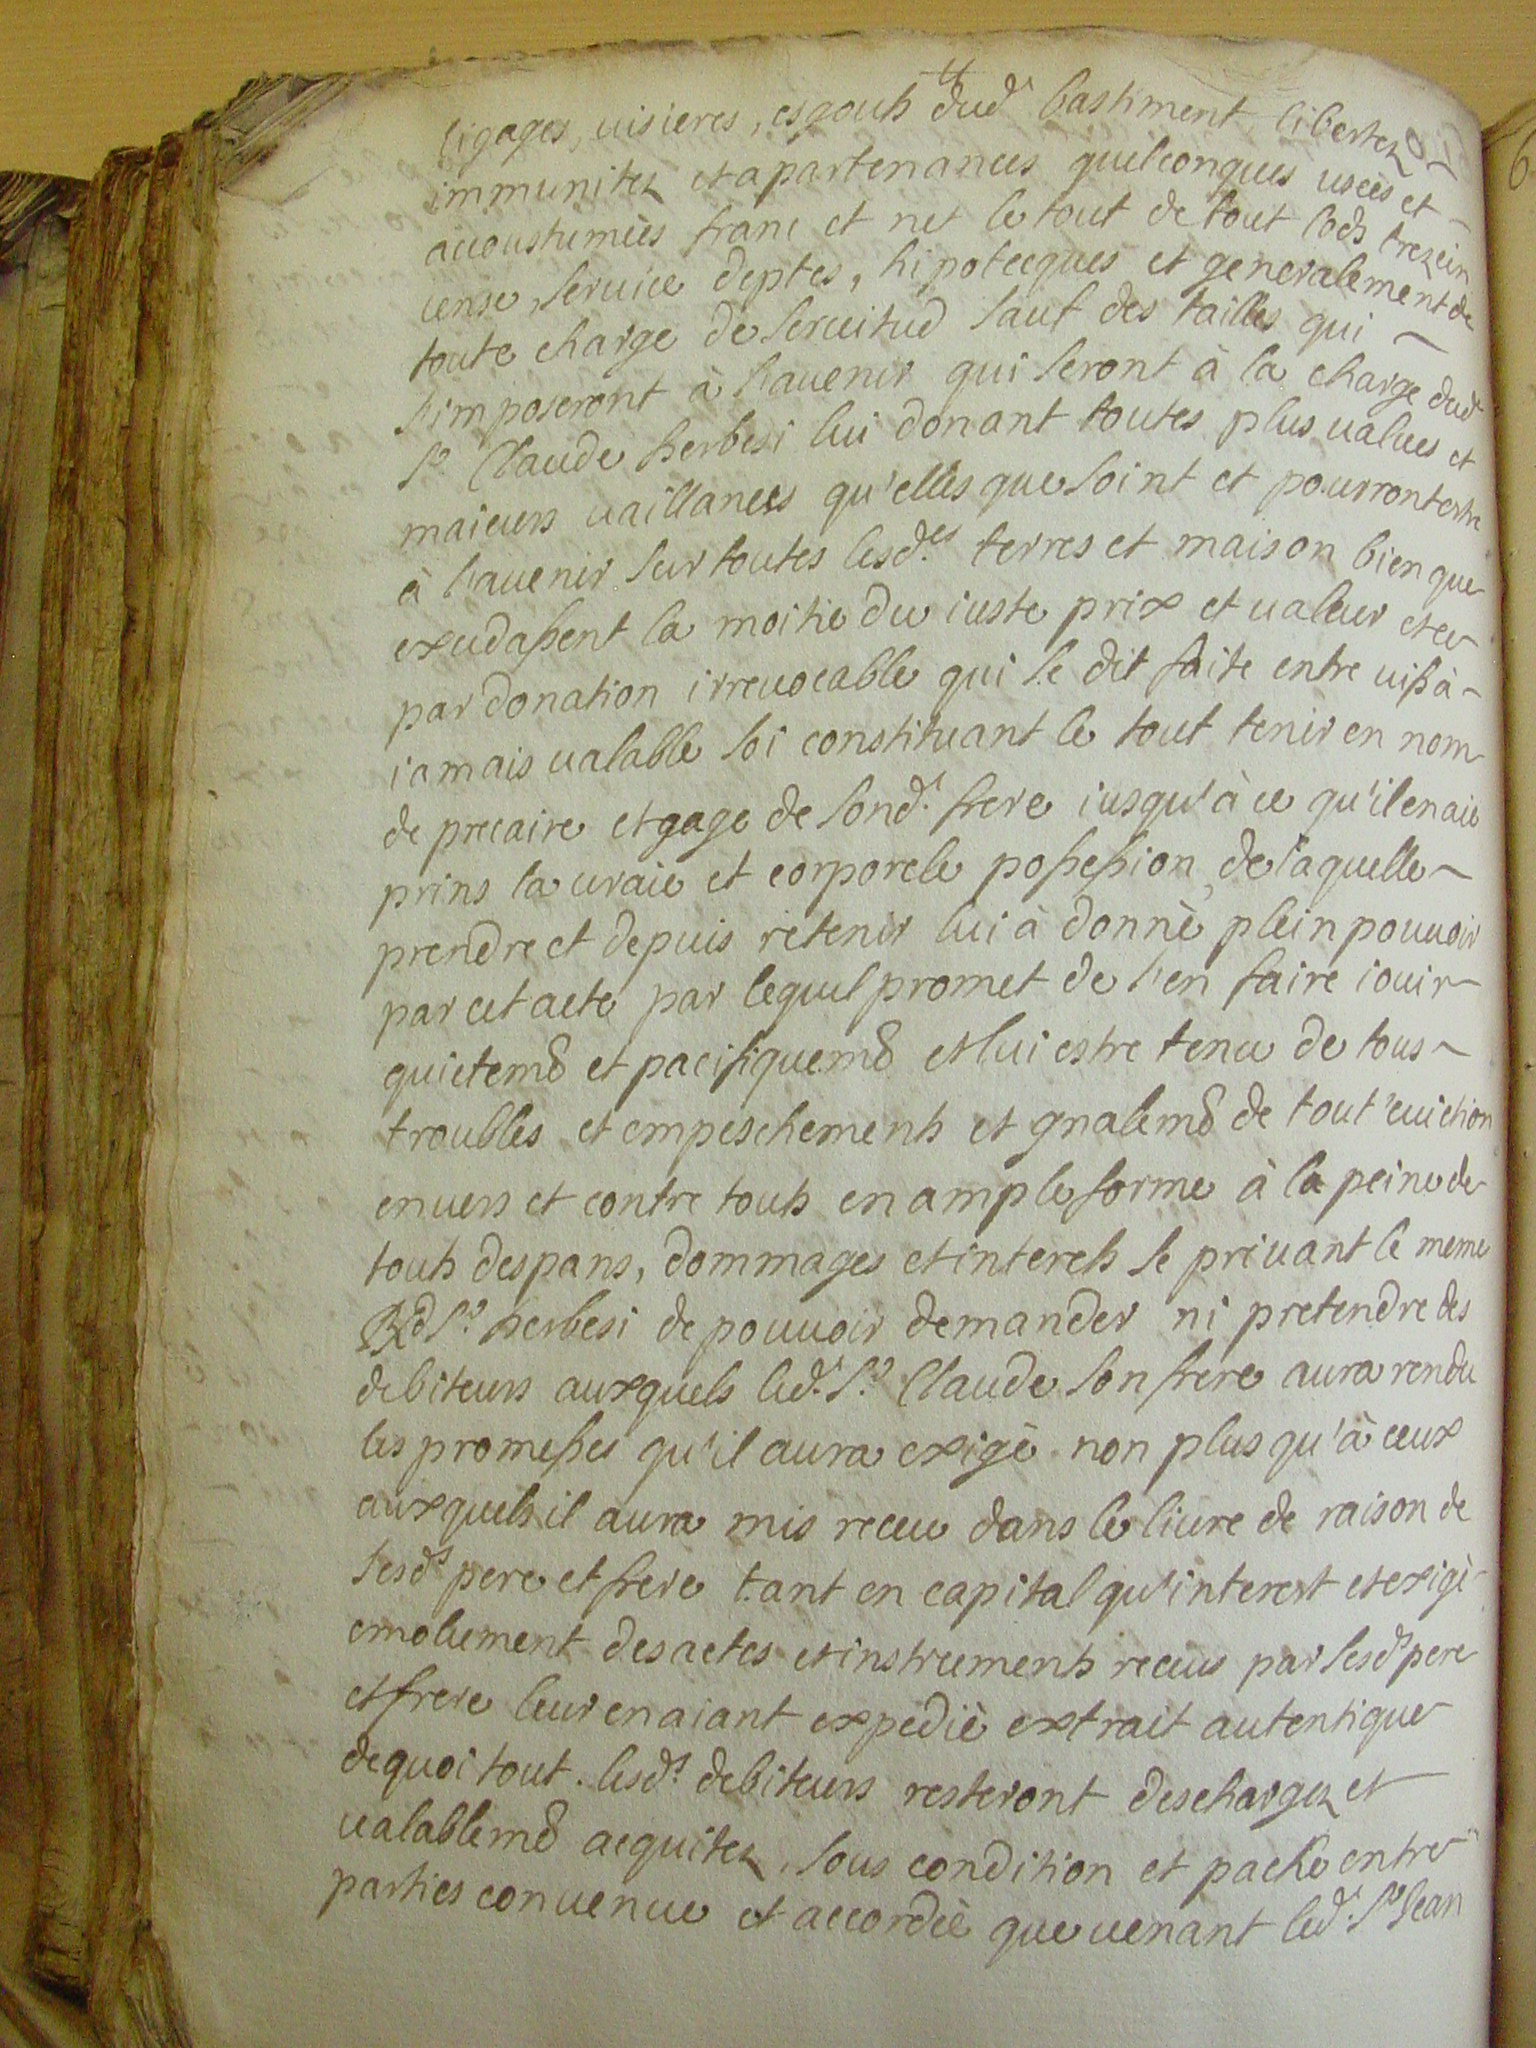 ligages, uisieres, esgouts dud.t bastiment libertez
immunitez et apartenances quelconques usèes et
accoustumèes franc et net le tout de tout lods trezein
cense, seruice deptes, hipotecques et generalement de
toute charge de seruitud sauf des tailles qui
s'imposeront à l'auenir qui seront à la charge dud.t
S.r Claude herbesi lui donant toutes plus values et
maieurs uaillances qu'elles que soint et pourront estre
à l'auenir sur toutes lesd.es terres et maison bien que
excedassent la moitie du iuste prix et ualeur et ce
par donation irreuocable qui se dit faite entre uifs à
iamais ualable soi constituant le tout tenir en nom
de precaire et gage de sond.t frere iusqu'à ce qu'il en aie
prins la uraie et corporele possession, de laquelle
prendre et depuis retenir lui à donnè plein pouuoir
par cet acte par lequel promet de l'en faire iouir
quietemt et pacifiquemt et lui estre tenu de tous
troubles et empeschements et gnalemt de tout'euiction
enuers et contre touts en ample forme à la peine de
touts despans, dommages et interets se priuant le meme
Rd S.r herbesi de pouuoir demander ni pretendre des
debiteurs auxquels led.t S.r Claude son frere aura rendu
les promesses qu'il aura exigè non plus qu'à ceux
auxquels il aura mis receu dans le liure de raison de
sesd.s pere et frere tant en capital qu'interest et exigè
emolument des actes et instruments receus par sesd.s pere
et frere leur en aiant expediè extrait autentique
de quoi tout. lesd.s debiteurs resteront deschargez et
ualablemt acquitez, sous condition et pache entre
parties conuenue et accordèe que uenant led.t S.r Jean